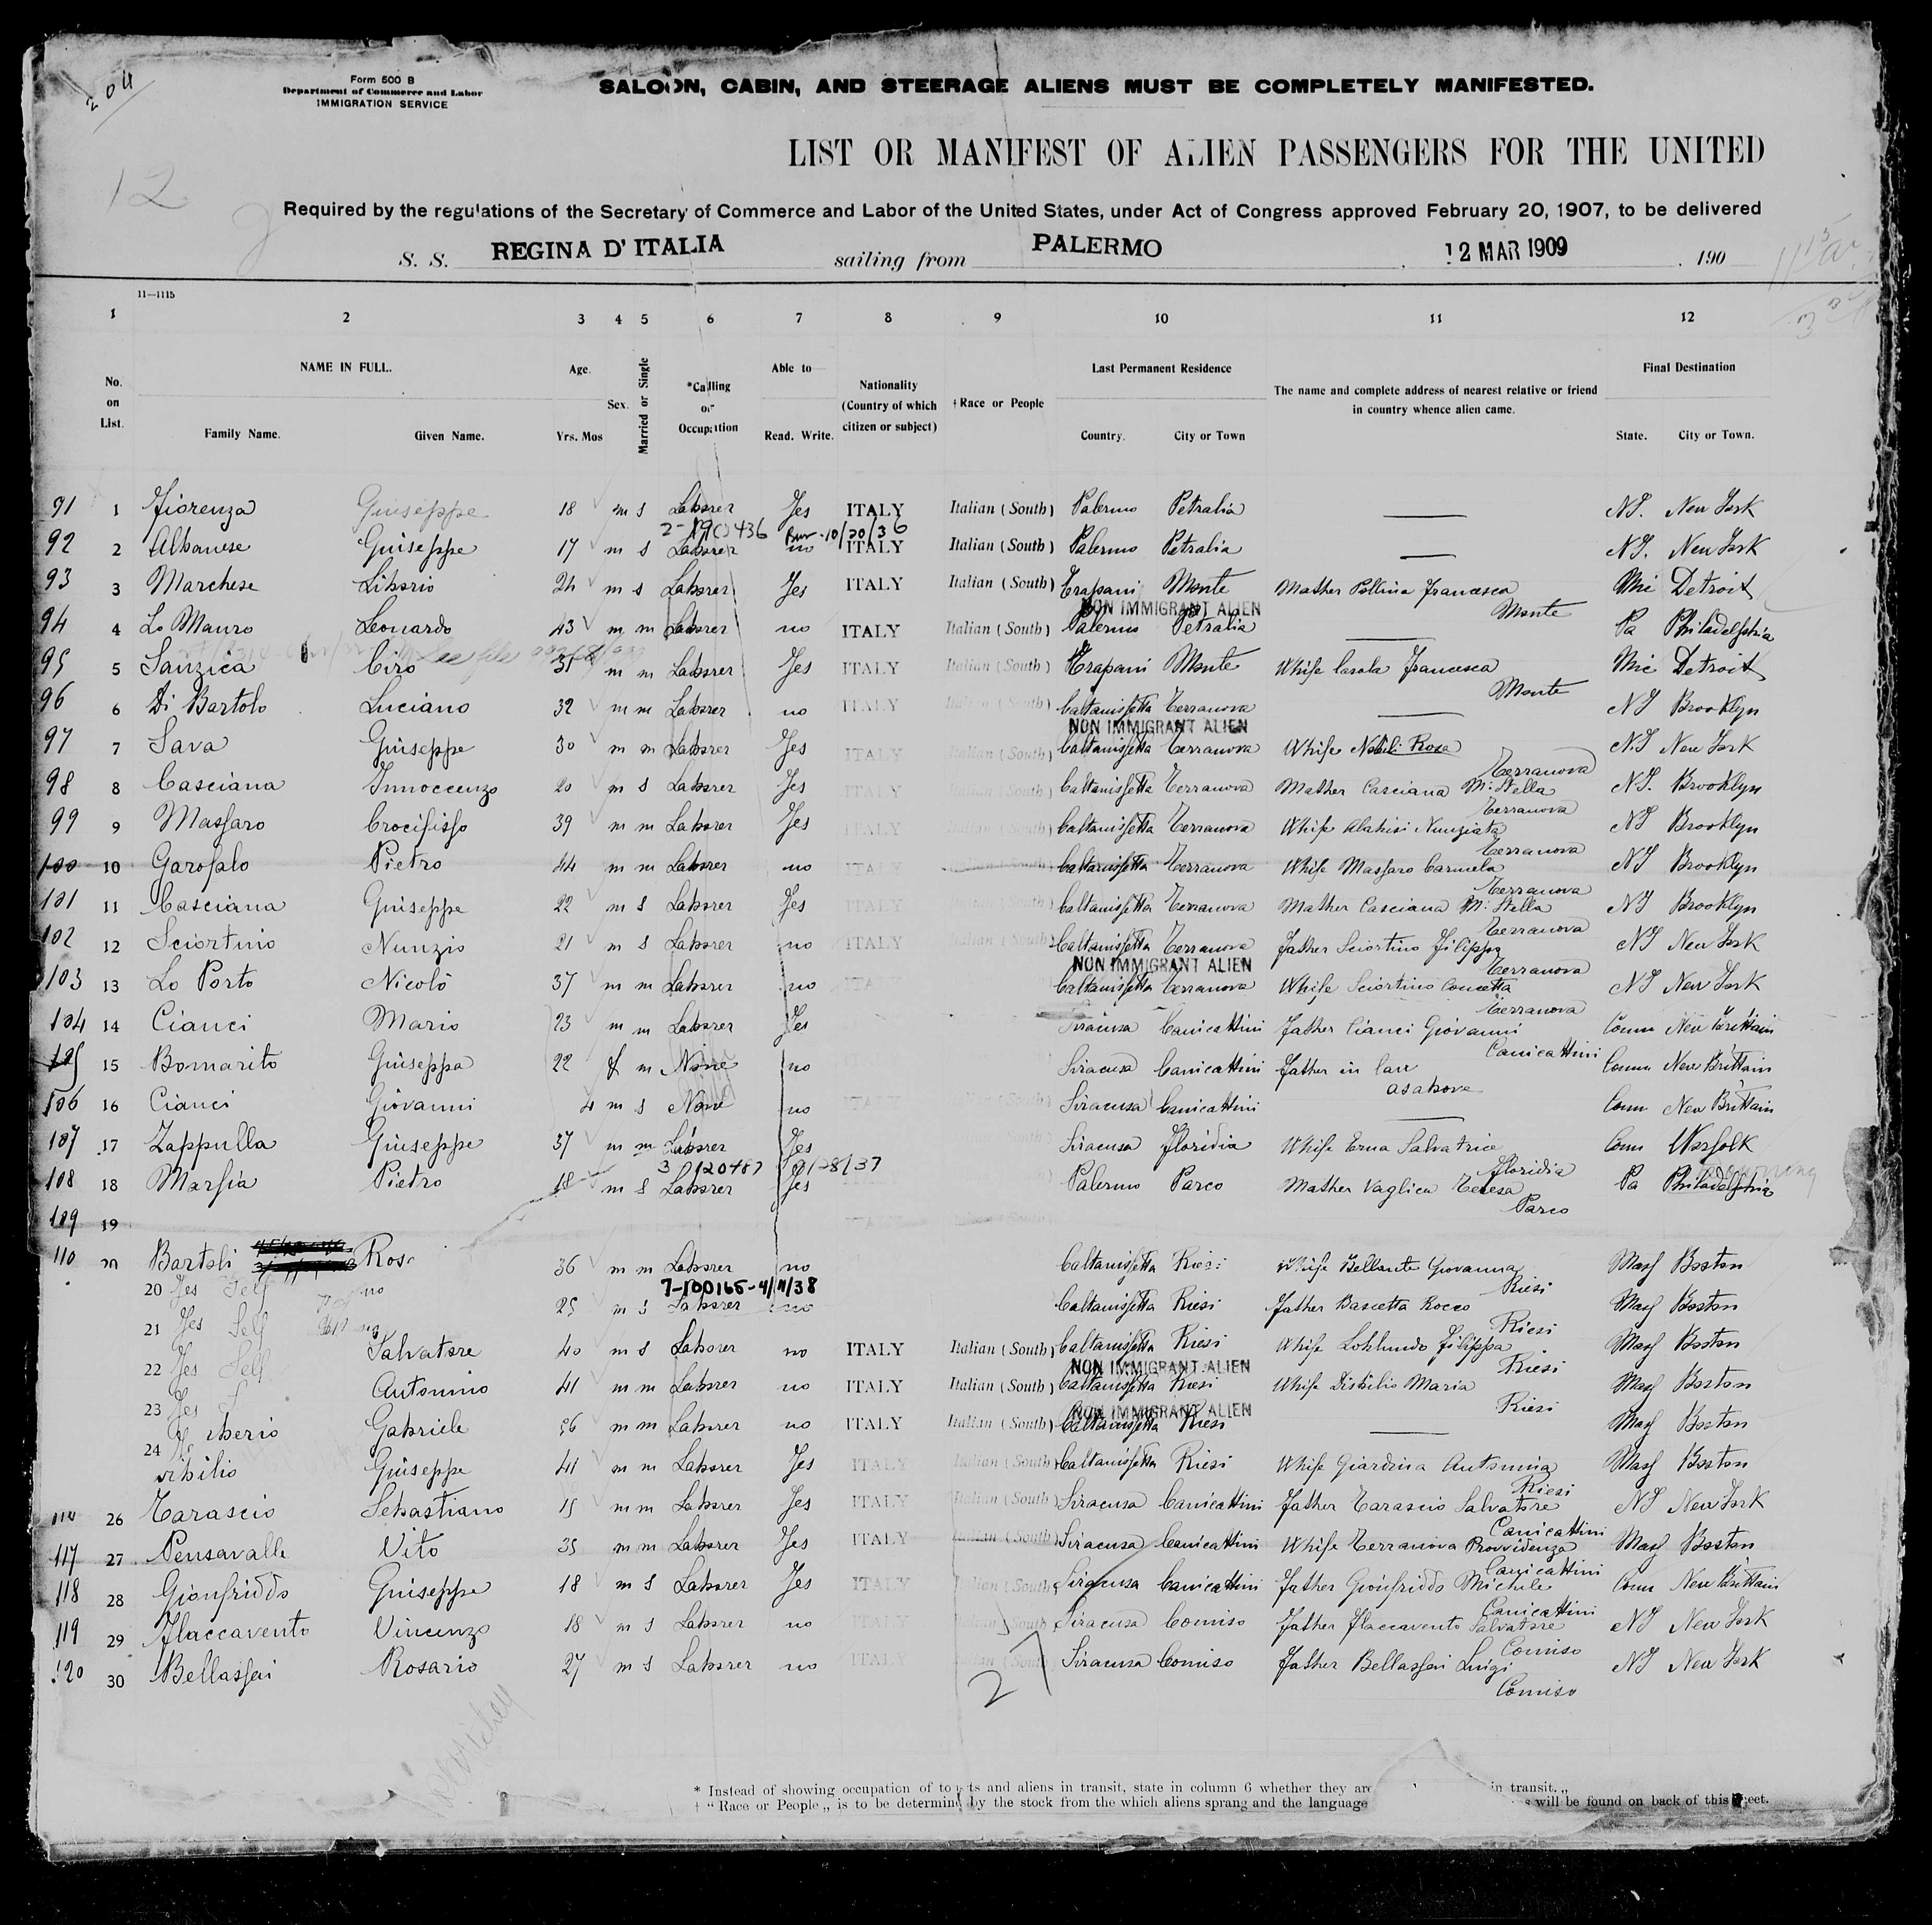 204
Form 500 B
Department of Commerce and Labor
IMMIGRATION SERVICE
SALOON, CABIN, AND STEERAGE ALIENS MUST BE COMPLETELY MANIFESTED.
12
LIST OR MANIFEST OF ALIEN PASSENGERS FOR THE UNITED
Required by the regulations of the Secretary of Commerce and Labor of the United States, under Act of Congress approved February 20, 1907, to be delivered
S. S. REGINA D' ITALIA sailing from PALERMO 12 MAR 1909 . 190
11—1115
1 2 3 4 5 6 7 8 9 10 11 12
No. on List. NAME IN FULL. Family Name. Given Name. Age. Yrs. Mos Sex. Married or Single *Calling or Occupation Able to Read. Write. Nationality (Country of which citizen or subject) †Race or People Last Permanent Residence Country. City or Town The name and complete address of nearest relative or friend in country whence alien came. Final Destination State. City or Town.
91 1 Fiorenza Giuseppe 18 m s Laborer Yes ITALY Italian (South) Palermo Petralia — NY. New York
2-190436 10/20/36
92 2 Albanese Giuseppe 17 m s Laborer no ITALY Italian (South) Palermo Petralia — NY. New York
93 3 Marchese Liborio 24 m s Laborer Yes ITALY Italian (South) Trapani Monte Mather Pollina Francesca Monte Mic Detroit
NON IMMIGRANT ALIEN
94 4 Lo Mauro Leonardo 43 m m Laborer no ITALY Italian (South) Palermo Petralia — Pa Philadelphia
95 5 Sanzica Ciro 35 m m Laborer Yes ITALY Italian (South) Trapani Monte Whife Casola Francesca Monte Mic Detroit
96 6 Di Bartolo Luciano 32 m m Laborer no ITALY Italian (South) Caltanissetta Terranova — NY Brooklyn
NON IMMIGRANT ALIEN
97 7 Sava Giuseppe 30 m m Laborer Yes ITALY Italian (South) Caltanissetta Terranova Whife Nobili Rosa Terranova N.Y New York
98 8 Casciana Innoccenzo 20 m s Laborer Yes ITALY Italian (South) Caltanissetta Terranova Mather Casciana M. Stella Terranova NY. Brooklyn
99 9 Massaro Crocifisso 39 m m Laborer Yes ITALY Italian (South) Caltanissetta Terranova Whife Alabisi Nunziata Terranova NY Brooklyn
100 10 Garofalo Pietro 44 m m Laborer no ITALY Italian (South) Caltanissetta Terranova Whife Massaro Carmela Terranova NY Brooklyn
101 11 Casciana Giuseppe 22 m s Laborer Yes ITALY Italian (South) Caltanissetta Terranova Mather Casciana M. Stella Terranova NY Brooklyn
102 12 Sciortino Nunzio 21 m s Laborer no ITALY Italian (South) Caltanissetta Terranova Father Sciortino Filippo Terranova NY New York
NON IMMIGRANT ALIEN
103 13 Lo Porto Nicolò 37 m m Laborer no ITA Caltanissetta Terranova Whife Sciortino Concetta Terranova NY New York
104 14 Cianci Mario 23 m m Laborer Yes Siracusa Canicattini Father Cianci Giovanni Canicattini Conn New Brittain
105 15 Bomarito Giuseppa 22 f m None no Siracusa Canicattini Father in law as above Conn New Brittain
106 16 Cianci Giovanni 4 m s None no Siracusa Canicattini — Conn New Brittain
107 17 Zappulla Giuseppe 37 m m Laborer Yes Siracusa Floridia Whife Erna Salvatrice Floridia Conn Norfolk
3 120487 9/28/37
108 18 Marsia Pietro 18 m s Laborer Yes Palermo Parco Mather Vaglica Teresa Parco Pa Philadelphia
109 19 ITALY Italian (South)
110 20 Bartoli Ros 36 m m Laborer no Caltanissetta Riesi Whife Bellante Giovanna Riesi Mass Boston
7-100165-4/11/38
20 Yes Self no 25 m s Laborer no Caltanissetta Riesi Father Bascetta Rocco Riesi Mass Boston
21 Yes Self Salvatore 40 m s Laborer no ITALY Italian (South) Caltanissetta Riesi Whife Loblundo Filippa Riesi Mass Boston
NON IMMIGRANT ALIEN
22 Yes Self Antonino 41 m m Laborer no ITALY Italian (South) Caltanissetta Riesi Whife Disbilio Maria Riesi Mass Boston
NON IMMIGRANT ALIEN
23 Yes berio Gabriele 26 m m Laborer no ITALY Italian (South) Caltanissetta Riesi — Mass Boston
24 sibilio Giuseppe 41 m m Laborer Yes ITALY Italian (South) Caltanissetta Riesi Whife Giardina Antonina Riesi Mass Boston
26 Tarascio Sebastiano 15 m m Laborer Yes ITALY Italian (South) Siracusa Canicattini Father Tarascio Salvatore Canicattini NY New York
117 27 Pensavalle Vito 35 m m Laborer Yes ITALY Italian (South) Siracusa Canicattini Whife Terranova Provvidenza Canicattini Mass Boston
118 28 Gionfriddo Giuseppe 18 m s Laborer Yes ITALY Italian (South) Siracusa Canicattini Father Gionfriddo Michele Canicattini Conn New Brittain
119 29 Flaccavento Vincenzo 18 m s Laborer no ITALY Italian (South Siracusa Comiso Father Flaccavento Salvatore Comiso NY New York
120 30 Bellassai Rosario 27 m s Laborer no ITALY Italian (South) Siracusa Comiso Father Bellassai Luigi Comiso NY New York
27
* Instead of showing occupation of tourists and aliens in transit, state in column 6 whether they are in transit.„
† “ Race or People „ is to be determined by the stock from the which aliens sprang and the language will be found on back of this sheet.